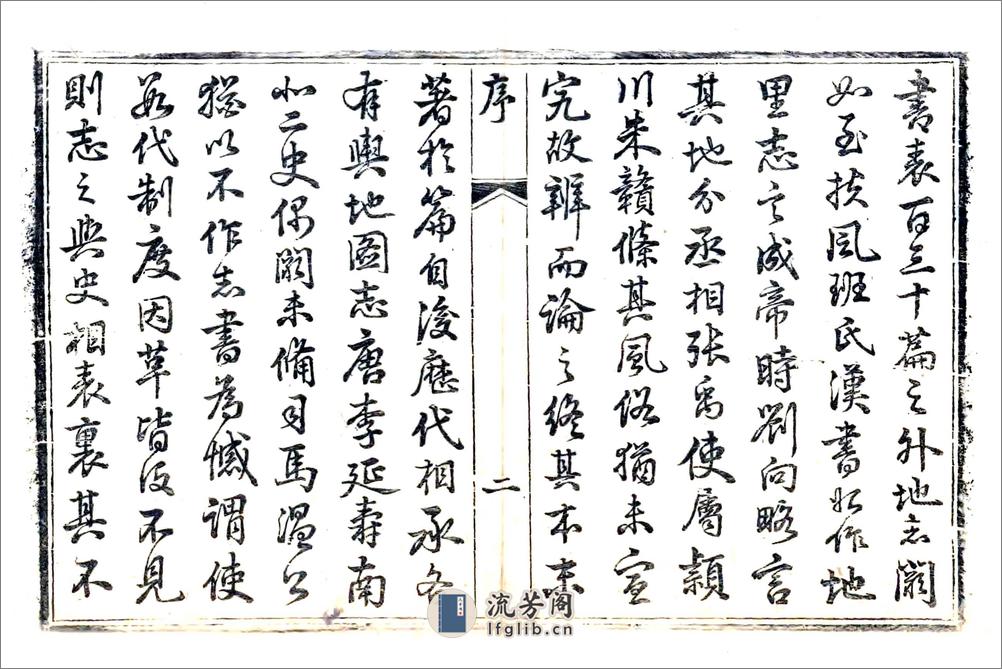 書表百三十篇之外地志闕
如至扶風班氏漢書始作地
里志言成帝時劉向略言
其地分丞相張禹使屬潁
川朱贛條其風俗猶未宣
究故輯而論之終其本末
序 二
著於篇自後歷代相承各
有輿地圖志唐李延壽南
北二史偶闕未備司馬溫公
猶以不作志書為憾謂使
數代制度因革皆沒不見
則志之與史相表裏其不
流芳閣
lfglib.cn